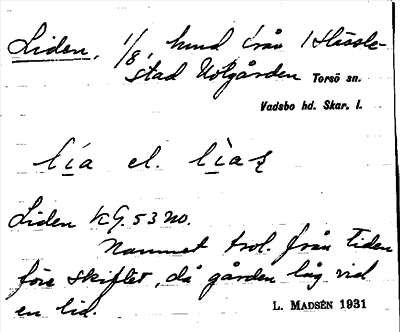 Liden, 1/8, hmd från Hassle-
stad Utgården Torsö sn.
Vadsbo hd. Skar. l.
lia el. lìaṛ
Liden KG. 53 NO.
Namnet trol. från tiden
före skiftet, då gården låg vid
en lid.
L. MADSÉN 1931